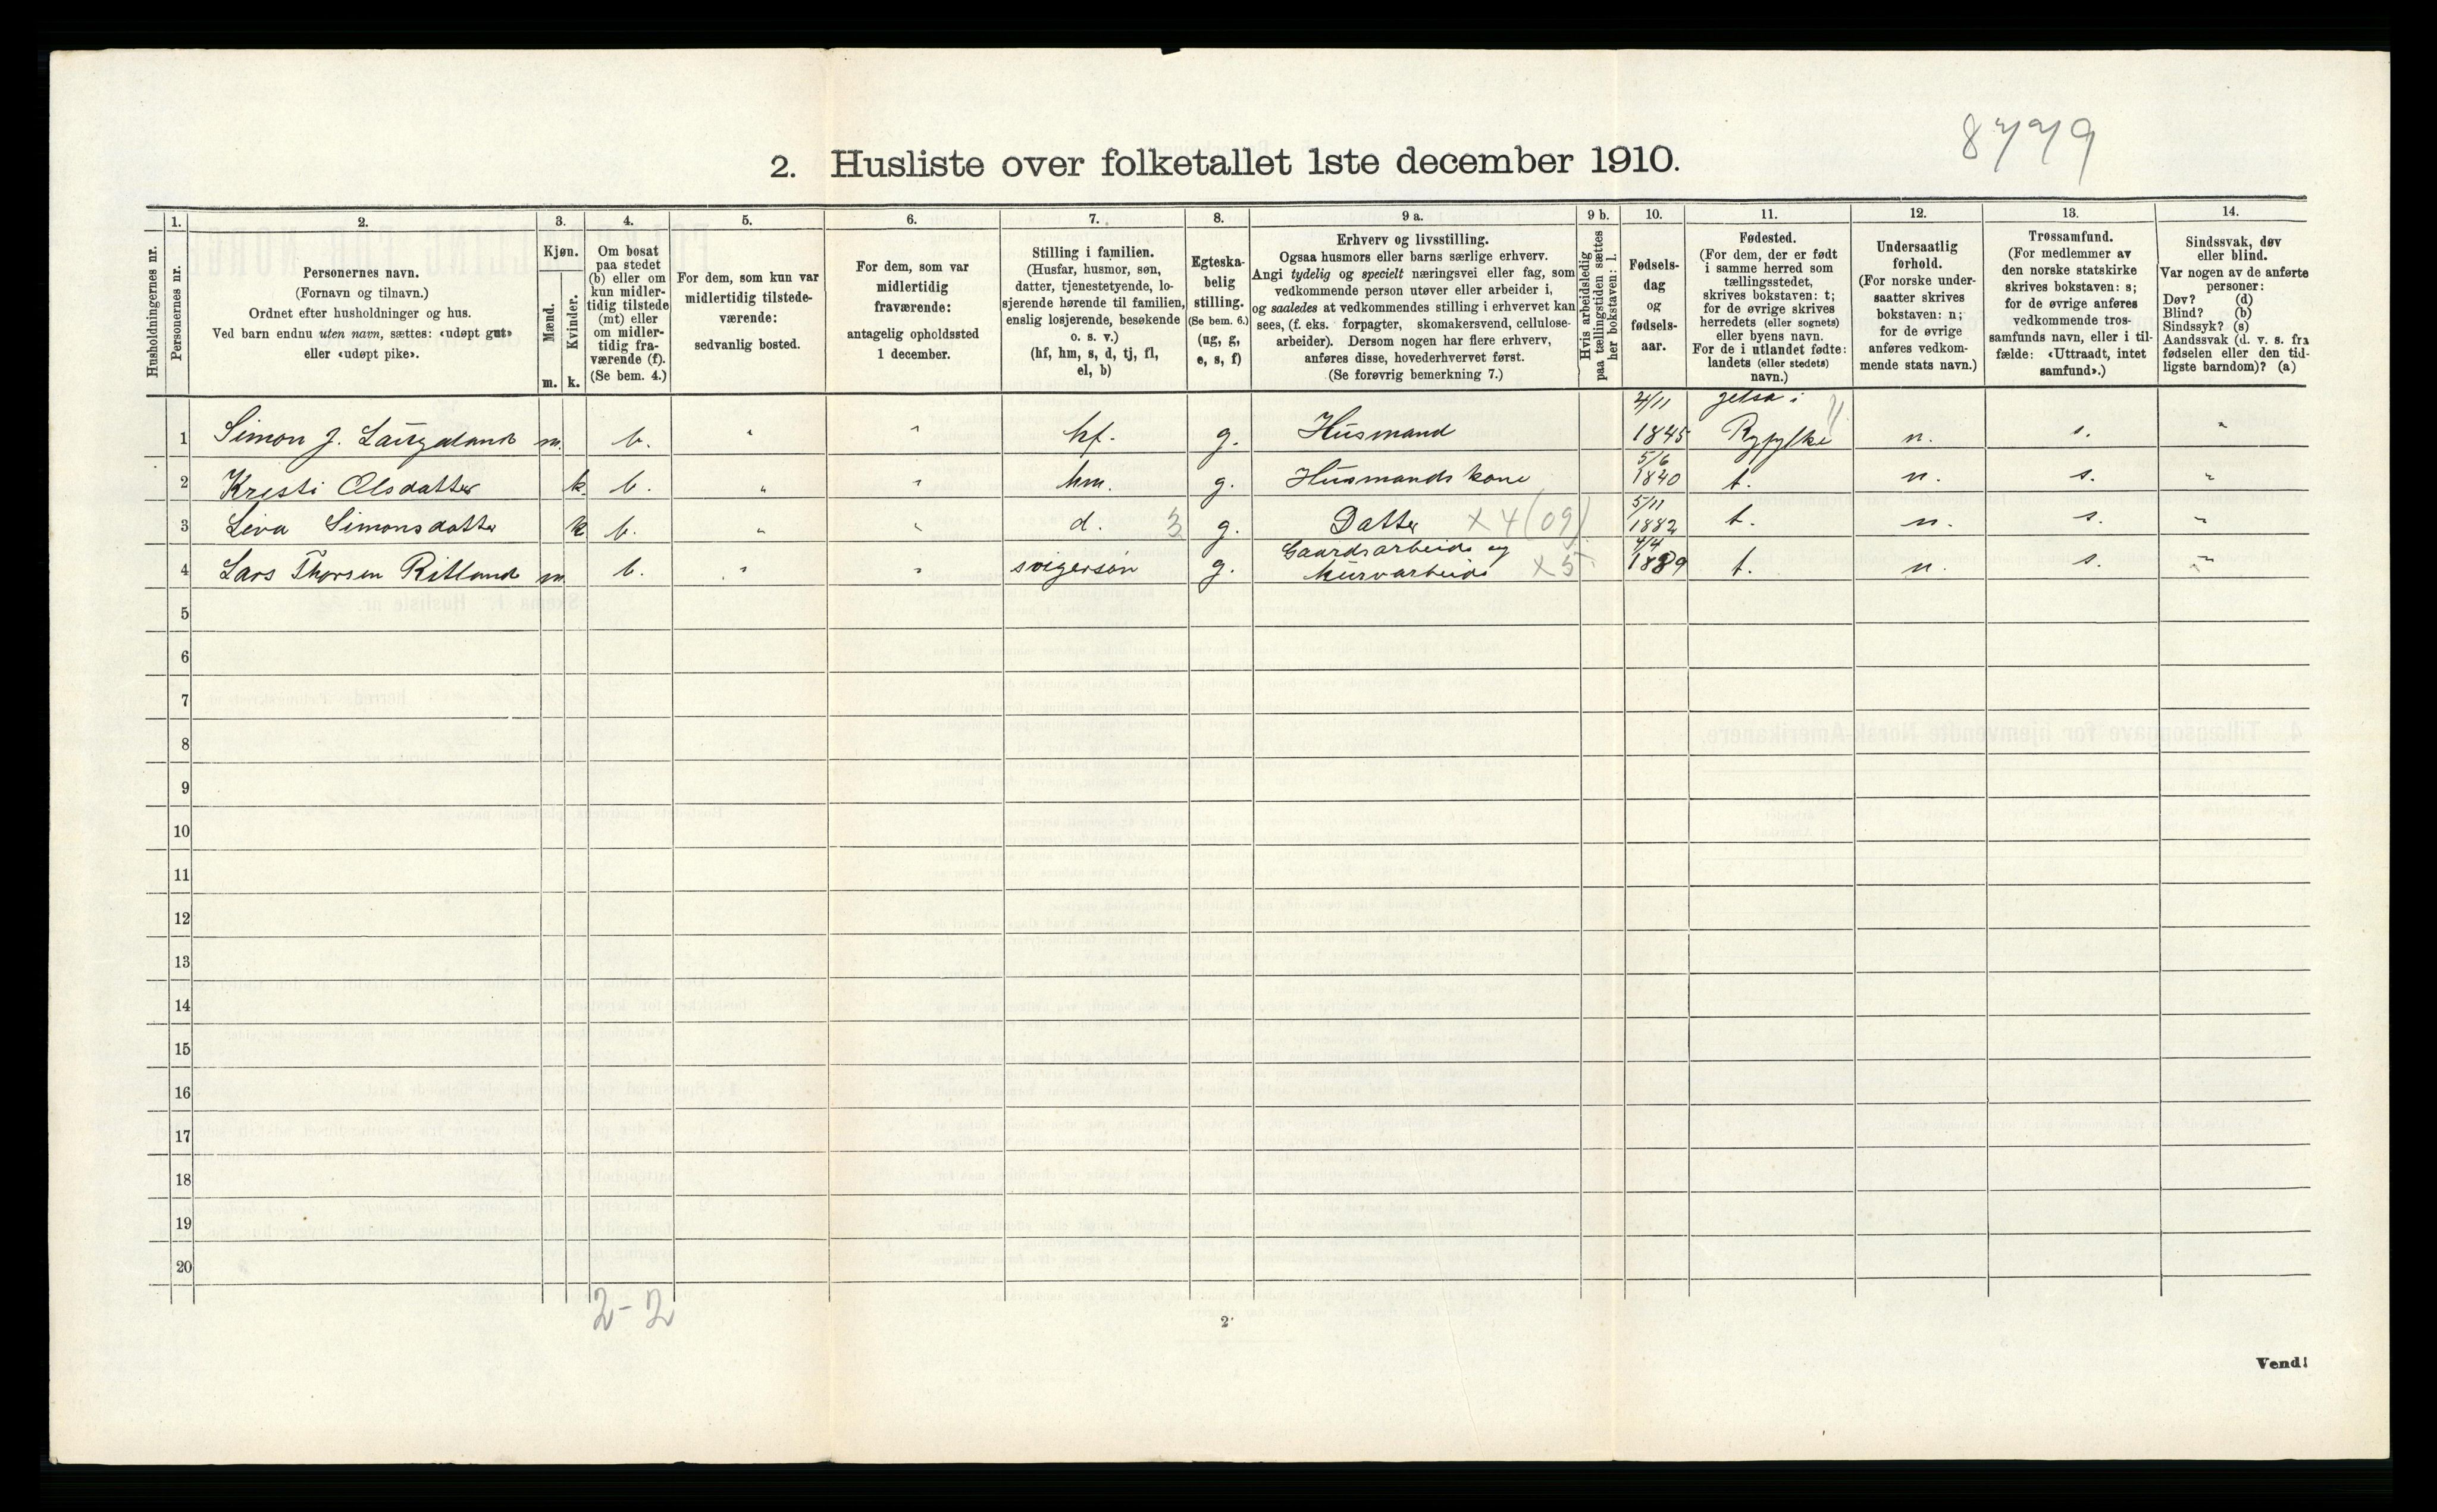 8779
2. Husliste over folketallet 1ste december 1910.
Husholdningernes nr.
1.
Personernes nr.
2.
Personernes navn.
(Fornavn og tilnavn.)
Ordnet efter husholdninger og hus.
Ved barn endnu uten navn, sættes: «udøpt gut»
eller «udøpt pike».
3.
Kjøn.
Mænd.
Kvinder.
m. k.
4.
Om bosat
paa stedet
(b) eller om
kun midler-
tidig tilstede
(mt) eller
om midler-
tidig fra-
værende (f).
(Se bem. 4.)
5.
For dem, som kun var
midlertidig tilstede-
værende:
sedvanlig bosted.
6.
For dem, som var
midlertidig
fraværende:
antagelig opholdssted
1 december.
7.
Stilling i familien.
(Husfar, husmor, søn,
datter, tjenestetyende, lo-
sjerende hørende til familien,
enslig losjerende, besøkende
o. s. v.)
(hf, hm, s, d, tj, fl,
el, b)
8.
Egteska-
belig
stilling.
(Se bem. 6.)
(ug, g,
e, s, f)
9 a.
Erhverv og livsstilling.
Ogsaa husmors eller barns særlige erhverv.
Angi tydelig og specielt næringsvei eller fag, som
vedkommende person utøver eller arbeider i,
og saaledes at vedkommendes stilling i erhvervet kan
sees, (f. eks. forpagter, skomakersvend, cellulose-
arbeider). Dersom nogen har flere erhverv,
anføres disse, hovederhvervet først.
(Se forøvrig bemerkning 7.)
9 b.
Hvis arbeidsledig
paa tællingstiden sættes
her bokstaven: l.
10.
Fødsels-
dag
og
fødsels-
aar.
11.
Fødested.
(For dem, der er født
i samme herred som
tællingsstedet,
skrives bokstaven: t;
for de øvrige skrives
herredets (eller sognets)
eller byens navn.
For de i utlandet fødte:
landets (eller stedets)
navn.)
12.
Undersaatlig
forhold.
(For norske under-
saatter skrives
bokstaven: n;
for de øvrige
anføres vedkom-
mende stats navn.)
13.
Trossamfund.
(For medlemmer av
den norske statskirke
skrives bokstaven: s;
for de øvrige anføres
vedkommende tros-
samfunds navn, eller i til-
fælde: «Uttraadt, intet
samfund».)
14.
Sindssvak, døv
eller blind.
Var nogen av de anførte
personer:
Døv? (d)
Blind? (b)
Sindssyk? (s)
Aandssvak (d. v. s. fra
fødselen eller den tid-
ligste barndom)? (a)
4/11 Jelsa i
1 Simon J. Laugaland m. b. " " hf. g. Husmand 1845 Ryfylke n. s. "
5/6
2 Kristi Olsdatter k. b. " " hm. g. Husmands kone 1840 t. n. s. "
5/11
3 Liva Simonsdatter k b. " " d. 3 g. Datter x 4 (09) 1882 t. n. s. "
Gaardsarbeide og 4/4
4 Lars Thorsen Ritland m b. " " svigersøn g. murarbeide x 5 1889 t. n. s. "
5
6
7
8
9
10
11
12
13
14
15
16
17
18
19
20
2-2
2
Vend!